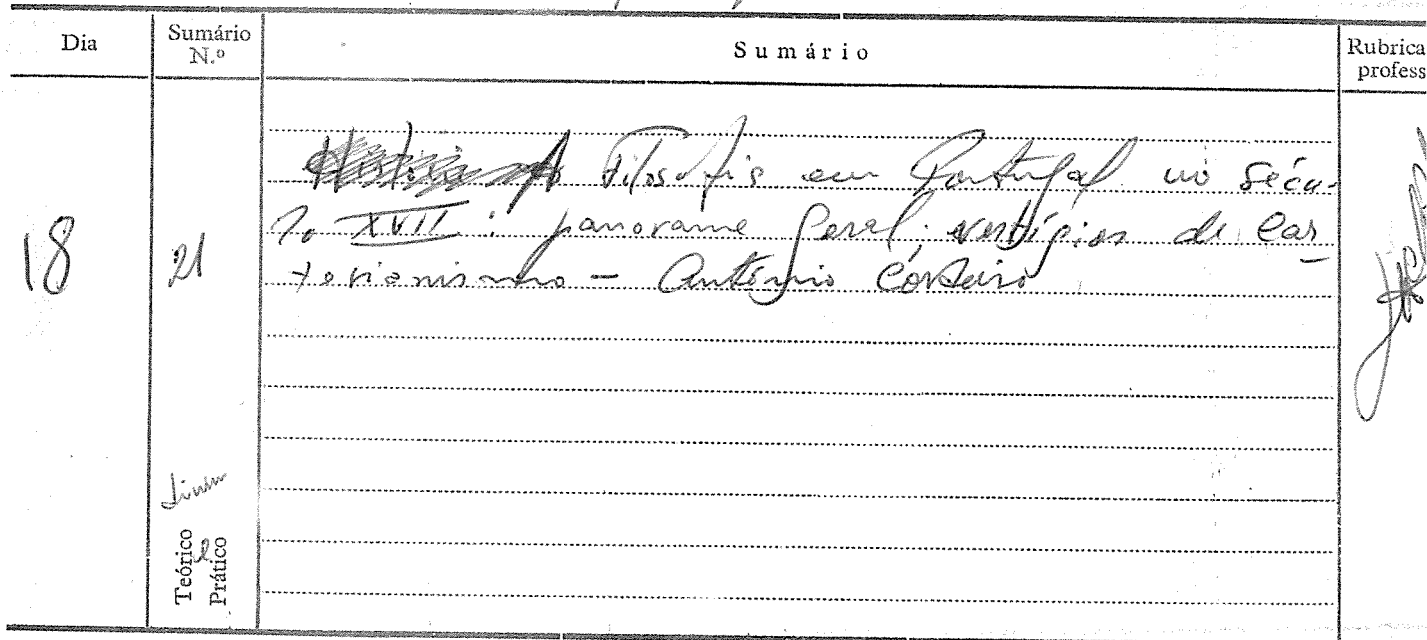 Dia
Sumário N.º
Sumário
Rubrica
profess
Filosofia em Portugal no sécu-
18
21
lo XVII: panorama geral; vestígios de car
tesianismo - António Cordeiro
Teórico e
Prático